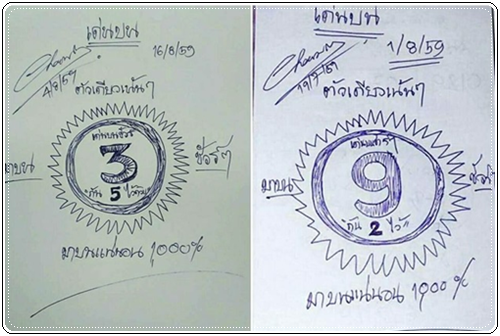 เด่นบน
16/8/59
4/8/59
ตัวเดียวเน้นๆ
3
มาบน
ชัวร์ๆ
กัน 5 ไว้ด้วย
มาบนแน่นอน 1000%
เด่นบน
1/8/59
19/7/59
ตัวเดียวเน้นๆ
9
มาบน
ชัวร์ๆ
กัน 2 ไว้
มาบนแน่นอน 1000%